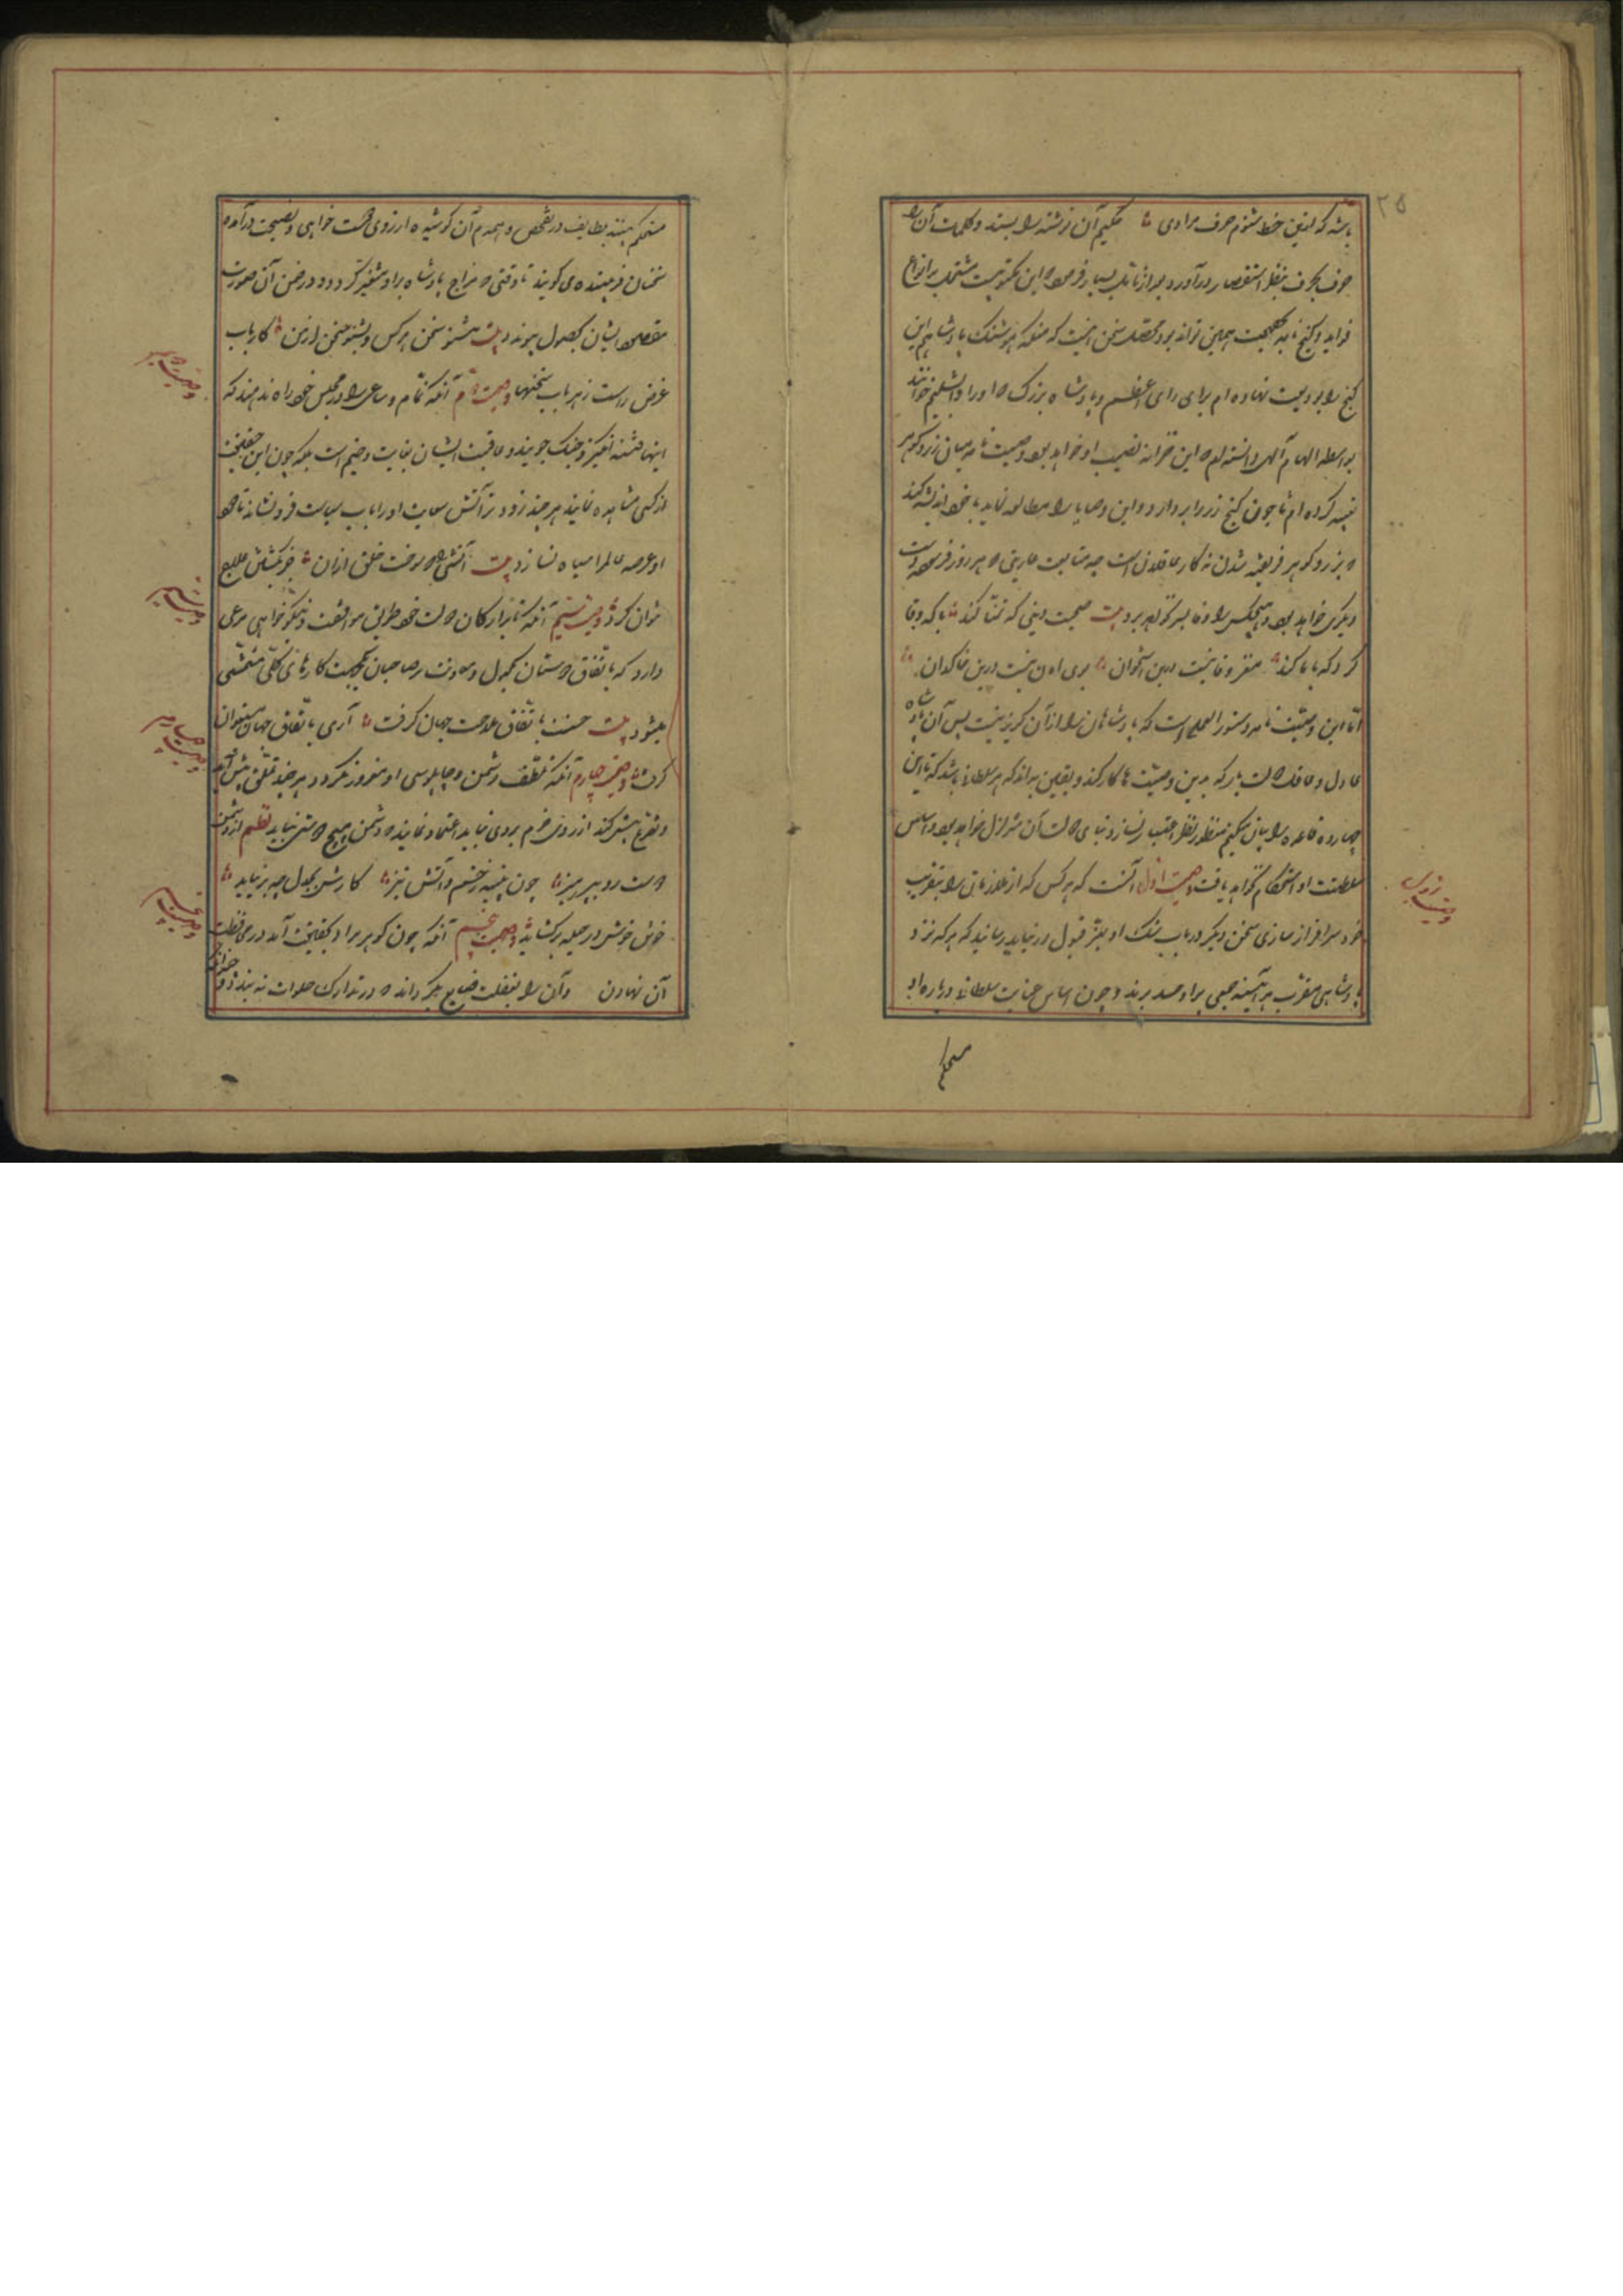 ۲۵
باشد که ازین خط شنوم حرف مرادی حکیم آن نوشته را بستد و کلمات آن را
حرف بحرف بنظر استقصار درآورد بعد از تامل بسیار فرمود که این مکتوبیست مشتمل بر انواع
فواید و گنج نامه حکمت همین تواند بود محصل سخن اینست که منکه هوشنگ پادشاهم این
گنج را ودیعت نهاده ام برای رای اعظم و پادشاه بزرگ که او را دابشلیم خوانند
بواسطه الهام الهی دانسته ام که این خزانه نصیب او خواهد بود و وصیت نامه میان زر و گوهر
تعبیه کرده ام تا چون گنج زر را بردارد و این وصایا را مطالعه نماید با خود اندیشه کند
که بزر و گوهر فریفته شدن نه کار عاقلان است چه متاعیست عاریتی که هر روز فرسوده دست
دیگری خواهد بود و با هیچکس راه وفا بسر نخواهد برد بیت صحبت دنیی که تمنا کند با که وفا
کرد که با ما کند مغز وفا نیست درین استخوان بوی امان نیست درین خاکدان
اما این وصیت نامه دستور العملی است که پادشاهان را از آن گریز نیست پس آن پادشاه
عادل و عاقل دولت یار که بدین وصیت ها کار کند و یقین بداند که هر سلطانی باشد که تا این
چهارده قاعده را بیان میکنم منظور نظر اعتبار نسازد بنای دولت آن متزلزل خواهد بود و اساس
سلطنت او استحکام نخواهد یافت وصیت اول آنست که هر کس که از ملازمان را بتقرب
خود سرافراز سازی سخن دیگری در باب شکست او بعز قبول نباید رسانید که هر که نزد
پادشاهی مقرب بود هر آینه جمعی بر او حسد برند و چون اساس عنایت سلطانی درباره او
مستحکم
مستحکم بینند بطایف در تفحص و اهدم آن کوشیده از روی دولت خواهی و نصیحت درآمده
سخنان فریبنده می گویند تا وقتی که مزاج پادشاه بر او متغیر گردد و در ضمن آن صورت
مقصود ایشان بحصول پیوندد بیت مشنو سخن هر کس و بشنو سخن از من کارباب
غرض راست ز هر باب سخنها وصیت دوم آنکه نمام و ساعی را در مجلس خود راه ندهند که
اینها فتنه انگیز و جنگ جویند و عاقبت ایشان بغایت وخیم است بلکه چون این صفت
از کسی مشاهده نمایند هر چند زودتر آتش سعایت او را باب سیاست فرو نشانند تا دود
او عرصه عالم را سیاه نسازد بیت آتشی را که سوخت خلق ازان جز بکشتن علاج
نتوان کرد وصیت سیم آنکه با ارکان دولت خود طریق موافقت و نیکو خواهی مرعی
دارد که باتفاق دوستان یکدل و معاونت مصاحبان یکجهت کارهای کلی متمشی
میشود بیت حسنت باتفاق ملاحت جهان گرفت آری باتفاق جهان میتوان
گرفت وصیت چهارم آنکه بتلطف دشمن و چاپلوسی او مغرور نگردد هر چند تملق پیش آرد
و تضرع بیش کند از روی حزم بر وی نباید اعتماد نماید که دشمن هیچ دوستی نیاید نظم از دشمن
دوست رو بپرهیز چون هیمه خشک و آتش تیز کارش بجدل چو برنیاید
خوش خوش در حیله برگشاید وصیت پنجم آنکه چون گوهر مراد بکف آمد در محافظت
آن تهاون و آن را بغفلت ضایع نگرداند که در تدارک صورت نه بندد و
وصیت اول
وصیت دوم
وصیت سیم
وصیت چهارم
وصیت پنجم